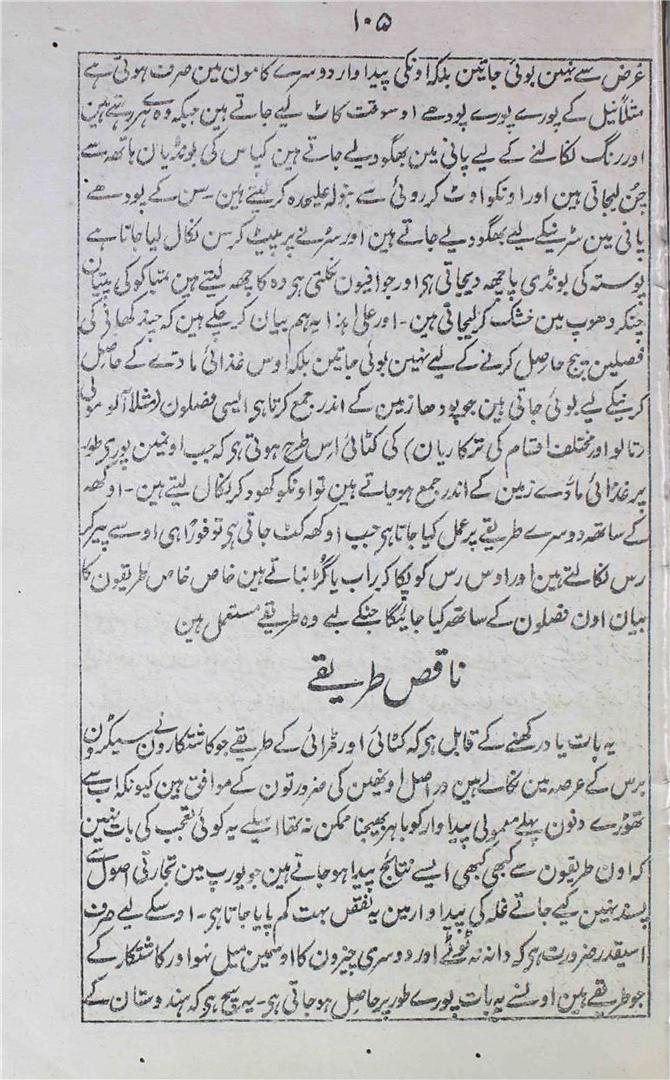 ۱۰۵
غرض سے نہین بوئی جاتین بلکہ اونکی پیداوار دوسرے کامون مین صرف ہوتی ہے
مثلاً نیل کے پورے پورے پودھے اوسوقت کاٹ لیے جاتے ہین جبکہ وہ ہرے رہتے ہین
اور رنگ نکالنے کے لیے پانی مین بھگو دیے جاتے ہین کپاس کی بونڈیان ہاتھہ سے
چن لیجاتی ہین اور اونکو اوٹ کر روئی سے بنولہ علیحدہ کر لیتے ہین - سن کے پودھے
پانی مین سڑنیکے لیے بھگو دیے جاتے ہین اور سڑنے پر پیٹ کر سن نکال لیا جاتا ہے
پوستہ کی بونڈی پاچھہ دیجاتی ہی اور جو افیون نکلتی ہی وہ کاچھہ لیتے ہین تمباکو کی پتیان
چنکر دھوپ مین خشک کر لیجاتی ہین - اور علی ہذا یہ ہم بیان کر چکے ہین کہ چند کھانے کی
فصلین بیج حاصل کرنے کے لیے نہین بوئی جاتین بلکہ اوس غذائی مادے کے حاصل
کرنیکے لیے بوئی جاتی ہین جو پودھا زمین کے اندر جمع کرتا ہی ایسی فصلون (مثلاً آلو مولی
رتالو اور مختلف اقسام کی ترکاریان) کی کٹائی اس طرح ہوتی ہی کہ جب اونمین پوری طور
پر غذائی مادے زمین کے اندر جمع ہو جاتے ہین تو اونکو کھود کر نکال لیتے ہین - اوکھہ
کے ساتھہ دوسرے طریقے پر عمل کیا جاتا ہی جب اوکھہ کٹ جاتی ہی تو فوراً ہی اوسے پیر کر
رس نکالتے ہین اور اوس رس کو پکا کر راب یا گڑ بناتے ہین خاص خاص طریقون کا
بیان اون فصلون کے ساتھہ کیا جائیگا جنکے لیے وہ طریقے مستعمل ہین
ناقص طریقے
یہ بات یاد رکھنے کے قابل ہی کہ کٹائی اور مڑائی کے طریقے جو کاشتکارون نے سیکڑون
برس کے عرصہ مین نکالے ہین دراصل اونھین کی ضرورتون کے موافق ہین کیونکہ اب سے
تھوڑے دنون پہلے معمولی پیداوار کو باہر بھیجنا ممکن نہ تھا اسیلے یہ کوئی تعجب کی بات نہین
کہ اون طریقون سے کبھی کبھی ایسے نتائج پیدا ہو جاتے ہین جو یورپ مین تجارتی اصول سے
پسند نہین کیے جاتے غلہ کی پیداوار مین یہ نقص بہت کم پایا جاتا ہے - اوسکے لیے صرف
اسیقدر ضرورت ہی کہ دانہ نہ ٹوٹے اور دوسری چیزون کا اوسمین میل نہو اور کاشتکار کے
جو طریقے ہین اونسے یہ بات پورے طور پر حاصل ہو جاتی ہی - یہ سچ ہی کہ ہندوستان کے